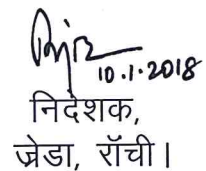 10.1.2018
निदेशक,
ज्रेडा, रॉची।